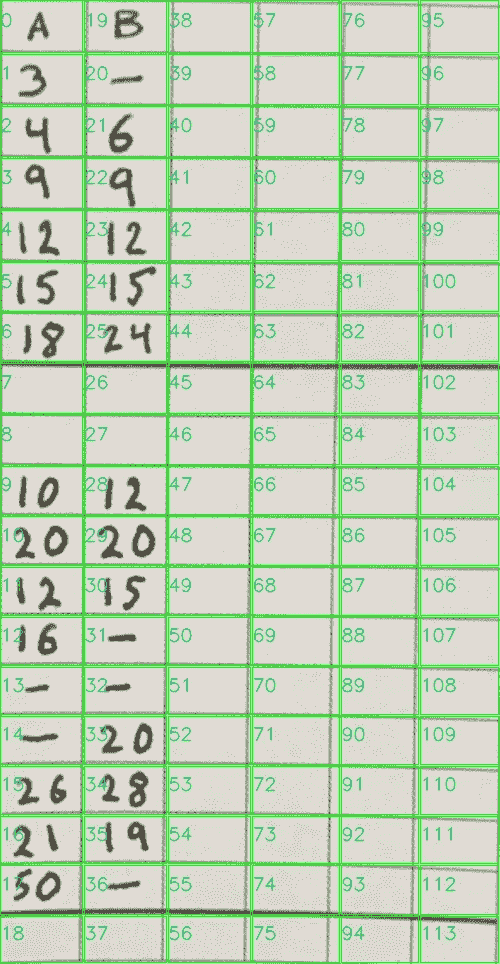 0 A 19 B 38 57 76 95
1 3 20 — 39 58 77 96
2 4 21 6 40 59 78 97
3 9 22 9 41 60 79 98
4 12 23 12 42 61 80 99
5 15 24 15 43 62 81 100
6 18 25 24 44 63 82 101
7 26 45 64 83 102
8 27 46 65 84 103
9 10 28 12 47 66 85 104
10 20 29 20 48 67 86 105
11 12 30 15 49 68 87 106
12 16 31 — 50 69 88 107
13 — 32 — 51 70 89 108
14 — 33 20 52 71 90 109
15 26 34 28 53 72 91 110
16 21 35 19 54 73 92 111
17 50 36 — 55 74 93 112
18 37 56 75 94 113